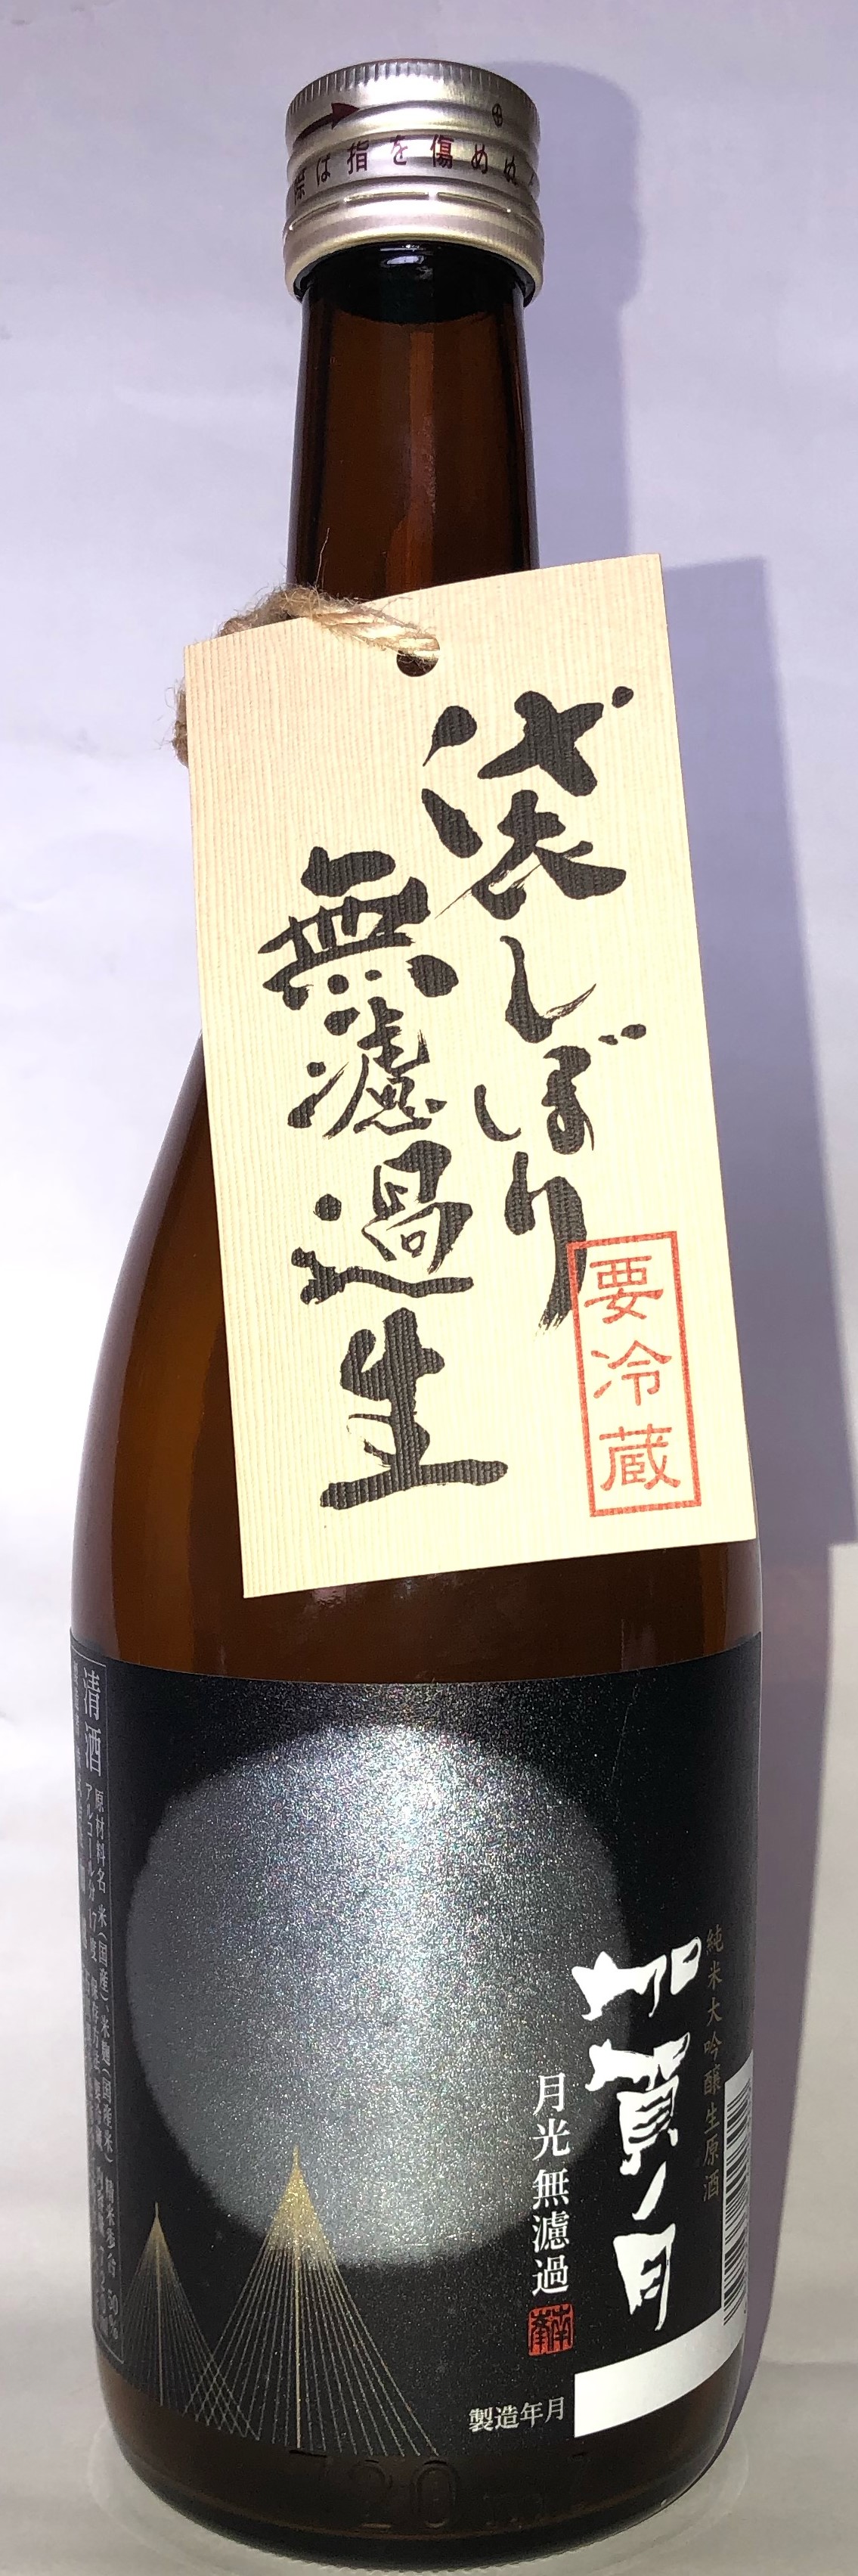 は指を傷めぬ
袋しぼり
無濾過生
要冷蔵
純米大吟醸生原酒
加賀ノ月
月光無濾過
製造年月
清酒
原材料名 米(国産)、米麹(国産米) 精米歩合 50%
アルコール分 17度
720ml